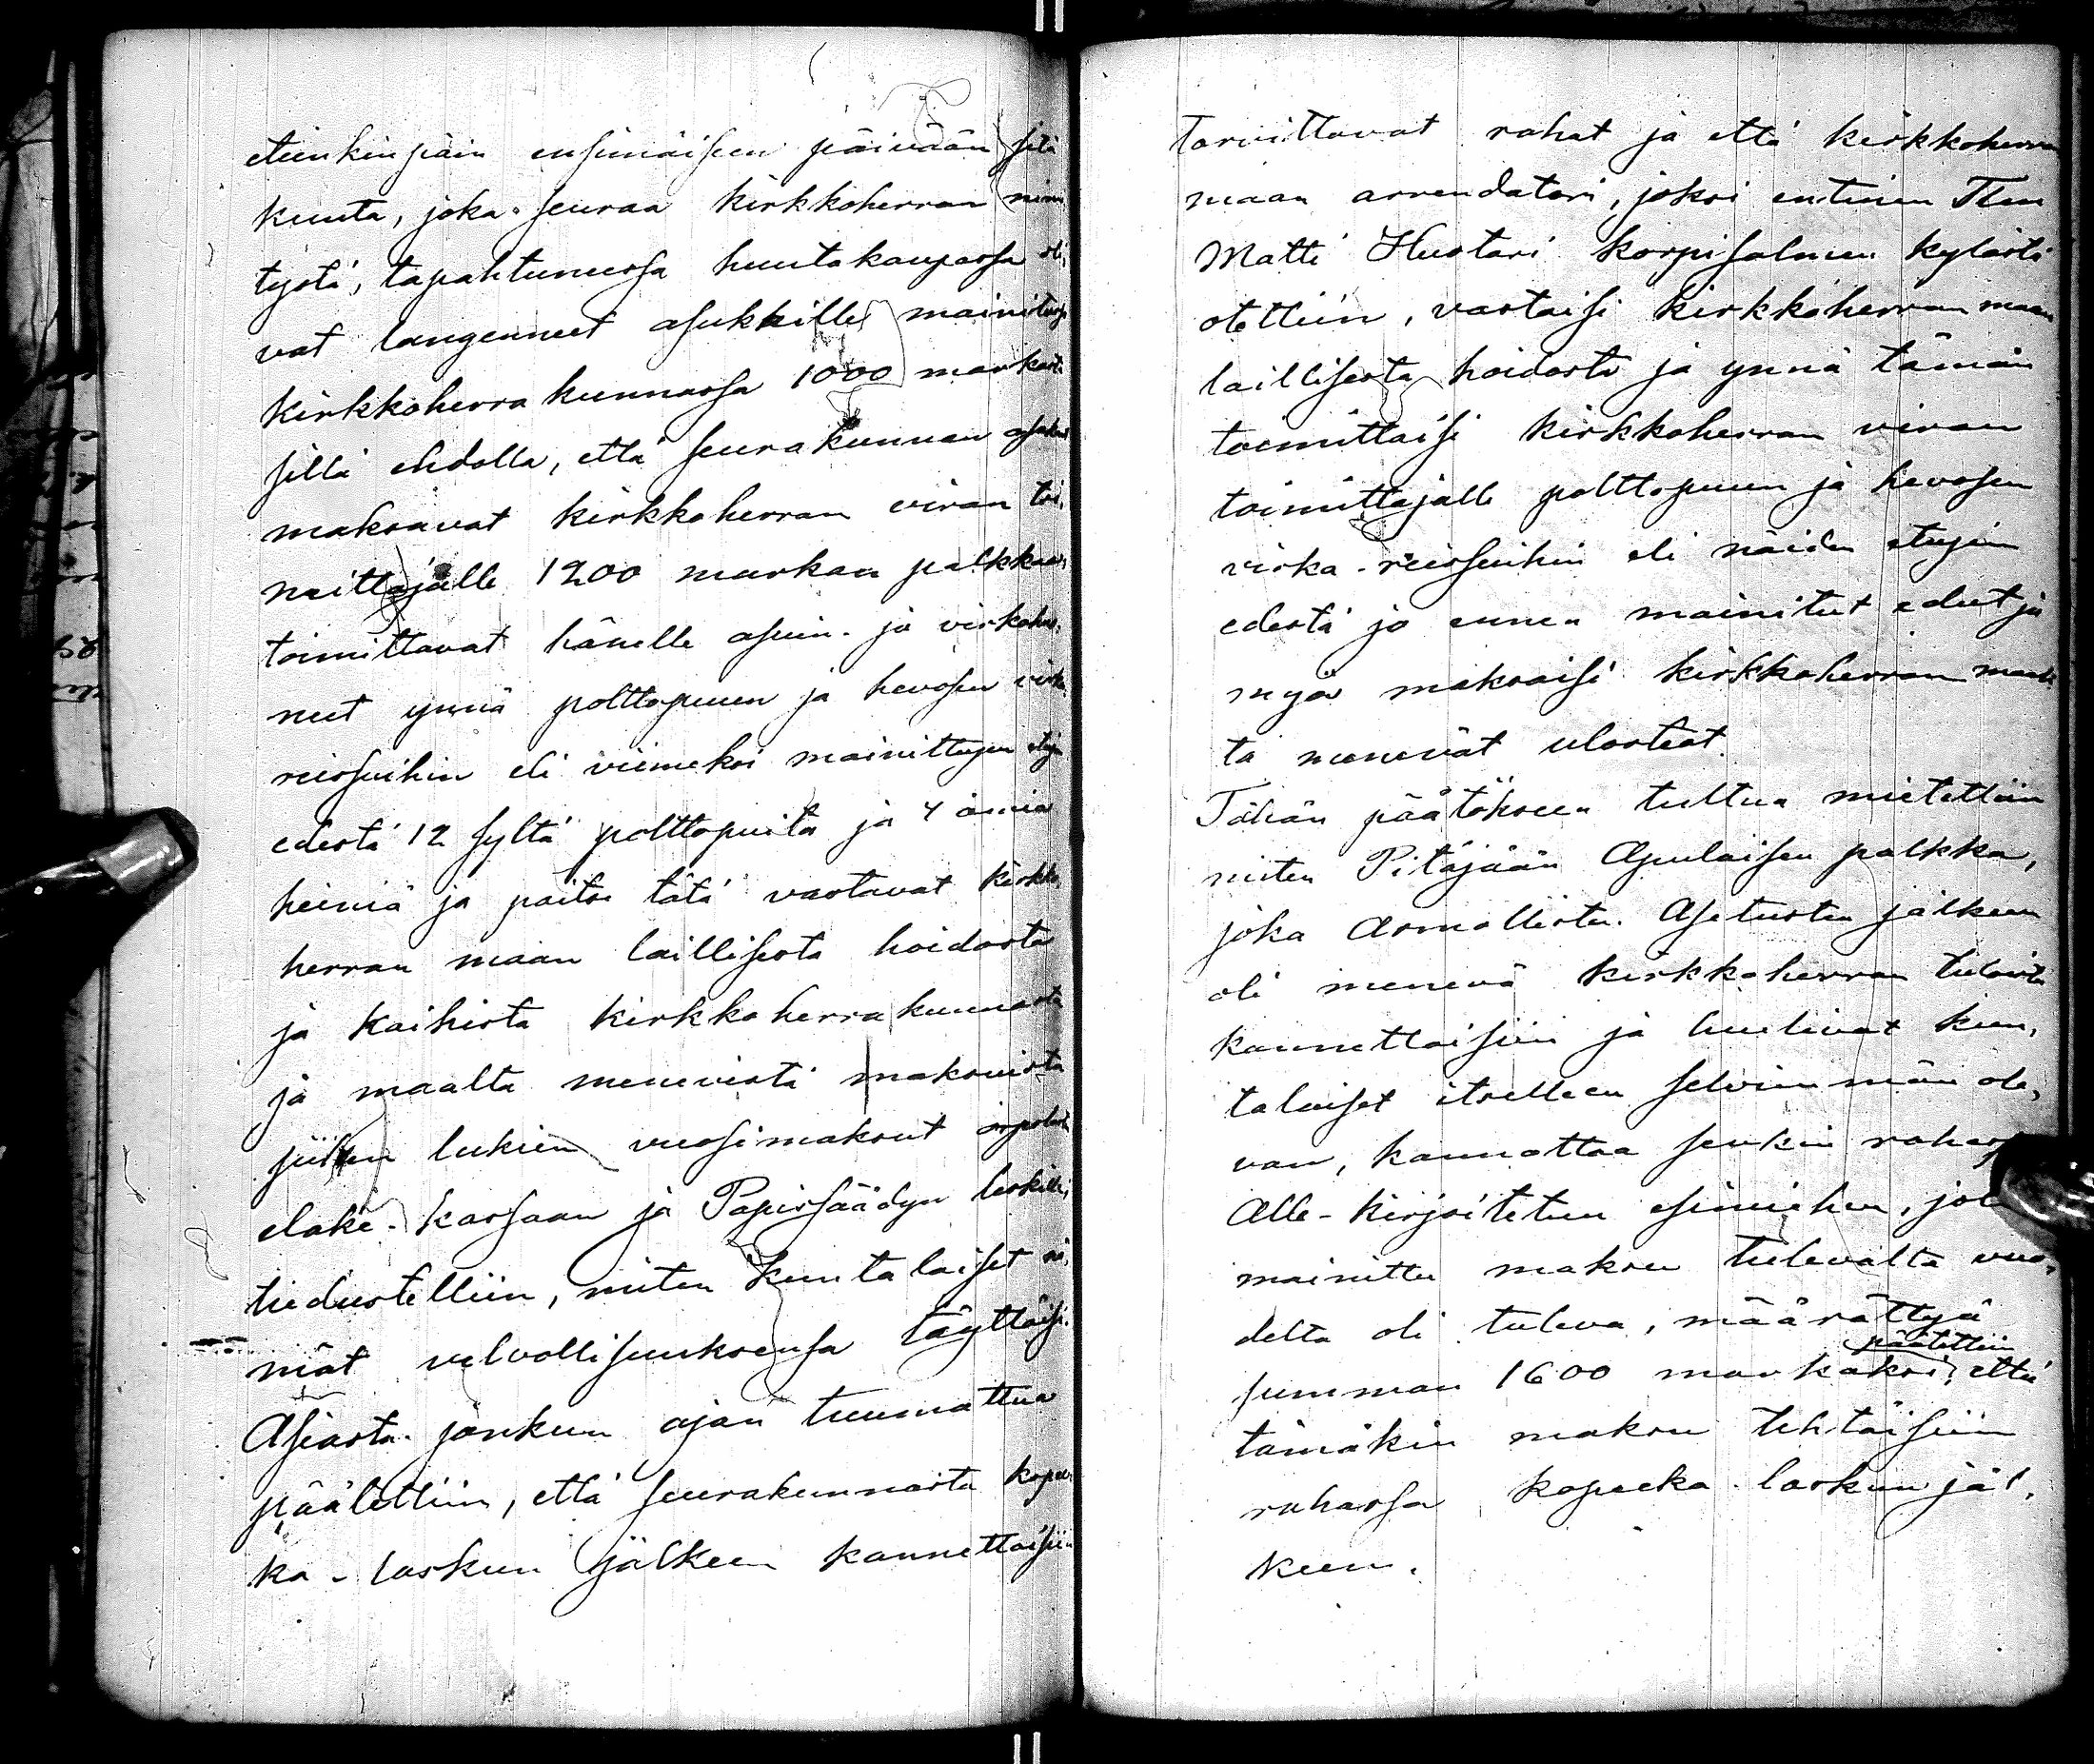 eteenkinpäin ensimäiseen päivään sitä
kuuta, joka seuraa kirkkoherran nimi
tystä, tapahtuneessa huutokaupassa oli,
vat langenneet asukkille mainitussa
kirkkoherrakunnassa 1000 markasta
sillä ehdolla, että seurakunnan
maksavat kirkkoherran viran toi,
mittajalle 1200 markan palkkaa,
toimittavat hänelle asuin- ja virkahuo,
neet ynnä polttopuun ja hevosen virka
reissuihin eli viimeksi mainittujen etujen
edestä 12 syltä polttopuita ja 4 aamia
heiniä ja paitsi tätä vastavat kirkko,
herran maan laillisesta hoidosta
ja kaikista kirkkoherrakunnasta
ja maalta menevistä maksuista
siihen lukien vuosimaksut
eläke-kassaan ja Papissäädyn leskille,
tiedusteltiin, miten kuntalaiset nä,
mät velvollisuuksensa täyttäisi.
Asiasta jonkun ajan tuumattua
päätettiin, että seurakunnasta kopee-
ka-laskun jälkeen kannettaisiin
tarvittavat rahat ja että kirkkoherran
maan arrendatori, joksi entinen
Matti Huotari Korpisalmen kylästä
otettiin, vastaisi kirkkoherran maan
laillisesta hoidosta ja ynnä tämän
toimittaisi kirkkoherran viran
toimittajalle polttopuun ja hevosen
virka-reissuihin eli näiden etujen
edestä jo ennen mainitut edut ja
myös maksaisi kirkkoherran maal-
ta menevät ulosteot.
Tähän päätökseen tultua mietettiin
miten Pitäjään Apulaisen palkka,
joka Armollisten Asetusten jälkeen
oli menevä kirkkoherran tuloista
kannettaisiin ja luulivat kun,
talaiset itselleen selvimmän ole,
van, kannattaa senkin rahassa
Alle-kirjoitetun esimiehen,
mainittu maksu tulevalta vuo,
delta oli tuleva, määrättyä
päätettiin
summan 1600 markaksi, että
tämäkin maksu tehtäisiin
rahassa kopeeka laskun jäl,
keen.